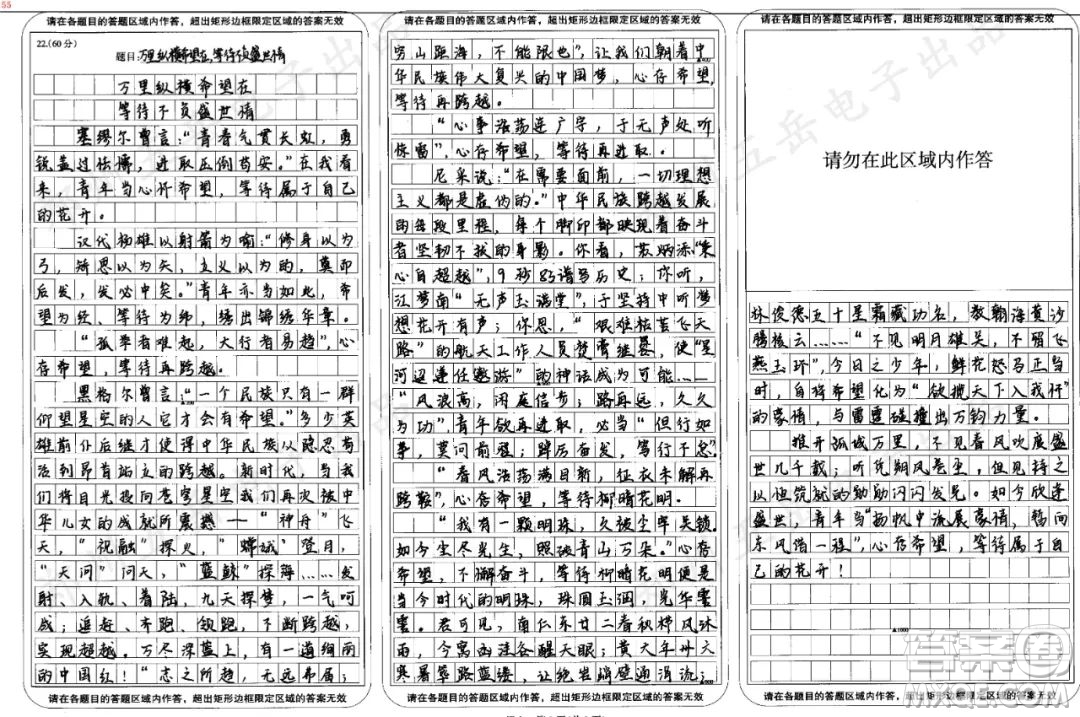 55
请在各题目的答题区域内作答，超出矩形边框限定区域的答案无效
22.(60分)
题目:万里纵横希望在,等待不负盛世情
万里纵横希望在
等待不负盛世情
塞缪尔曾言：“青春气贯长虹，勇
锐盖过怯懦，进取压倒苟安。”在我看
来，青年当心怀希望，等待属于自己
的花开。
汉代杨雄以射箭为喻：“修身以为
弓，矫思以为矢，立义以为的，奠而
后发，发必中矣。”青年亦当如此，希
望为经、等待为纬，绣出锦绣华章。
“孤举者难起，大行者易趋”，心
存希望，等待再跨越。
黑格尔曾言：“一个民族只有一群
仰望星空的人它才会有希望。”多少英
雄前仆后继才使得中华民族从隐忍苟
活到昂首站立的跨越。新时代，当我
们将目光投向苍穹星空我们再次被中
华儿女的成就所震撼——“神舟”飞
天，“祝融”探火，“嫦娥”登月，
“天问”问天，“蓝鲸”探海……发
射、入轨、着陆，九天探梦，一气呵
成；追赶、齐跑、领跑，不断跨越，
实现超越。万尽深蓝上，有一道绚丽
的中国红！“志之所趋，无远弗届；
请在各题目的答题区域内作答，超出矩形边框限定区域的答案无效
请在各题目的答题区域内作答，超出矩形边框限定区域的答案无效
穷山距海，不能限也”，让我们朝着中
华民族伟大复兴的中国梦，心存希望，
等待再跨越。
“心事浩荡连广宇，于无声处听
惊雷”，心存希望，等待再进取。
尼采说：“在需要面前，一切理想
主义都是虚伪的。”中华民族跨越发展
的每段里程，每个脚印都映现着奋斗
者坚韧不拔的身影。你看，苏炳添“集
心自超越”，9秒83谱写历史；你听，
江梦南“无声玉满堂”，于坚持中听梦
想花开有声；你思，“艰难枯苦飞天
路”的航天工作人员焚膏继晷，使“星
河迢递任遨游”的神话成为可能……
“风浪高，闲庭信步；路再远，久久
为功”，青年欲再进取，必当“但行如
事，莫问前程；踔厉奋发，笃行不怠”
“春风浩荡满目新，征衣未解再
跨鞍”，心存希望，等待柳暗花明。
“我有一颗明珠，久被尘牢关锁。
如今尘尽光生，照破青山万朵。”心存
希望，不懈奋斗，等待柳暗花明便是
当今时代的明珠，珠圆玉润，光华霎
霎。君可见，南仁东廿二春秋栉风沐
雨，今寓西洼备醒天眼；黄大年卅六
寒暑筚路蓝缕，让绝岩峭壁通涓流；
请在各题目的答题区域内作答，超出矩形边框限定区域的答案无效
请在各题目的答题区域内作答，超出矩形边框限定区域的答案无效
请勿在此区域内作答
林俊德五十星霜藏功名，教朝海黄沙
腾核云……“不见明月雄关，不留飞
燕玉环”，今日之少年，鲜花怒马正当
时，自将希望化为“欲揽天下入我怀”
的豪情，与雷霆碰撞出万钧力量。
推开孤城万里，不见春风吹度盛
世几千载；听凭朔风卷至，但见持之
以恒筑就的勋勋闪闪发光。如今欣逢
盛世，青年当“扬帆中流展豪情，暂向
东风借一程”，心存希望，等待属于自
己的花开！
▲1000
请在各题目的答题区域内作答，超出矩形边框限定区域的答案无效
五岳电子出品
答案圈
MXQE.COM